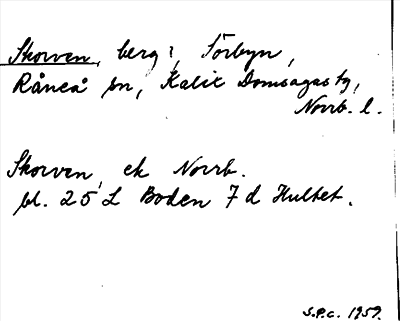 Skorven, berg i, Förbyn,
Råneå sn, Kalix Domsagas tg,
Norrb. l.
Skorven, ek Norrb.
bl. 25 L Boden 7 d Hultet.
S.P.C. 1959.